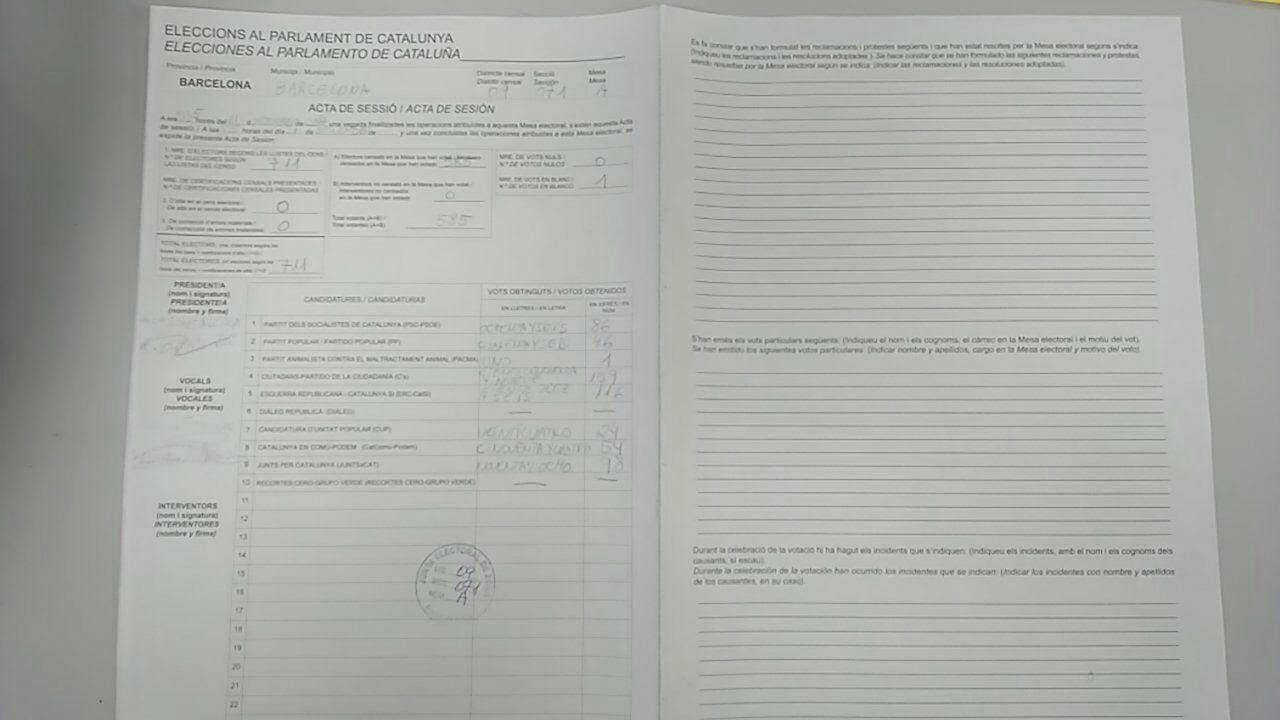 ELECCIONS AL PARLAMENT DE CATALUNYA
ELECCIONES AL PARLAMENTO DE CATALUÑA
Província / Provincia
Municipi / Municipio
Districte censal
Distrito censal
Secció
Sección
Mesa
Mesa
BARCELONA
BARCELONA
09
071
A
ACTA DE SESSIÓ / ACTA DE SESIÓN
A les hores del d de una vegada finalitzades les operacions atribuïdes a aquesta Mesa electoral, s'estén aquesta Acta
de sessió. / A las horas del día de de y una vez concluidas las operaciones atribuidas a esta Mesa electoral, se
expide la presente Acta de Sesión:
1. NRE. D'ELECTORS SEGONS LES LLISTES DEL CENS /
N.º DE ELECTORES SEGÚN
LAS LISTAS DEL CENSO
711
NRE. DE CERTIFICACIONS CENSALS PRESENTADES /
N.º DE CERTIFICACIONES CENSALES PRESENTADAS
2. D'alta en el cens electoral /
De alta en el censo electoral
0
3. De correcció d'errors materials /
De corrección de errores materiales
0
TOTAL ELECTORS
TOTAL ELECTORES
711
A) Electors censats en la Mesa que han votat / Electores
censados en la Mesa que han votado
585
B) Interventors no censats en la Mesa que han votat /
Interventores no censados
en la Mesa que han votado
0
Total votants (A+B) /
Total votantes (A+B)
585
NRE. DE VOTS NULS /
N.º DE VOTOS NULOS
0
NRE. DE VOTS EN BLANC /
N.º DE VOTOS EN BLANCO
1
PRESIDENT/A
(nom i signatura)
PRESIDENTE/A
(nombre y firma)
VOCALS
(nom i signatura)
VOCALES
(nombre y firma)
INTERVENTORS
(nom i signatura)
INTERVENTORES
(nombre y firma)
CANDIDATURES / CANDIDATURAS
VOTS OBTINGUTS / VOTOS OBTENIDOS
EN LLETRES / EN LETRA
EN XIFRES / EN NÚM.
1 PARTIT DELS SOCIALISTES DE CATALUNYA (PSC-PSOE) OCHENTAYSEIS 86
2 PARTIT POPULAR / PARTIDO POPULAR (PP) 46
3 PARTIT ANIMALISTA CONTRA EL MALTRACTAMENT ANIMAL (PACMA) UNO 1
4 CIUTADANS-PARTIDO DE LA CIUDADANÍA (C's)
5 ESQUERRA REPUBLICANA - CATALUNYA SÍ (ERC-CatSí) 116
6 DIÀLEG REPUBLICÀ (DIÀLEG) — —
7 CANDIDATURA D'UNITAT POPULAR (CUP) VEINTICUATRO 24
8 CATALUNYA EN COMÚ-PODEM (CatComú-Podem) 54
9 JUNTS PER CATALUNYA (JUNTSxCAT) NOVENTAYOCHO 98
10 RECORTES CERO-GRUPO VERDE (RECORTES CERO-GRUPO VERDE) — —
11
12
13
14
15
16
17
18
19
20
21
22
JUNTA ELECTORAL DE
09
071
A
Es fa constar que s'han formulat les reclamacions i protestes següents i que han estat resoltes per la Mesa electoral segons s'indica:
(Indiqueu les reclamacions i les resolucions adoptades). Se hace constar que se han formulado las siguientes reclamaciones y protestas,
siendo resueltas por la Mesa electoral según se indica: (Indicar las reclamaciones y las resoluciones adoptadas).
S'han emès els vots particulars següents. (Indiqueu el nom i els cognoms, el càrrec en la Mesa electoral i el motiu del vot).
Se han emitido los siguientes votos particulares: (Indicar nombre y apellidos, cargo en la Mesa electoral y motivo del voto).
Durant la celebració de la votació hi ha hagut els incidents que s'indiquen: (Indiqueu els incidents, amb el nom i els cognoms dels
causants, si escau).
Durante la celebración de la votación han ocurrido los incidentes que se indican: (Indicar los incidentes con nombre y apellidos
de los causantes, en su caso).